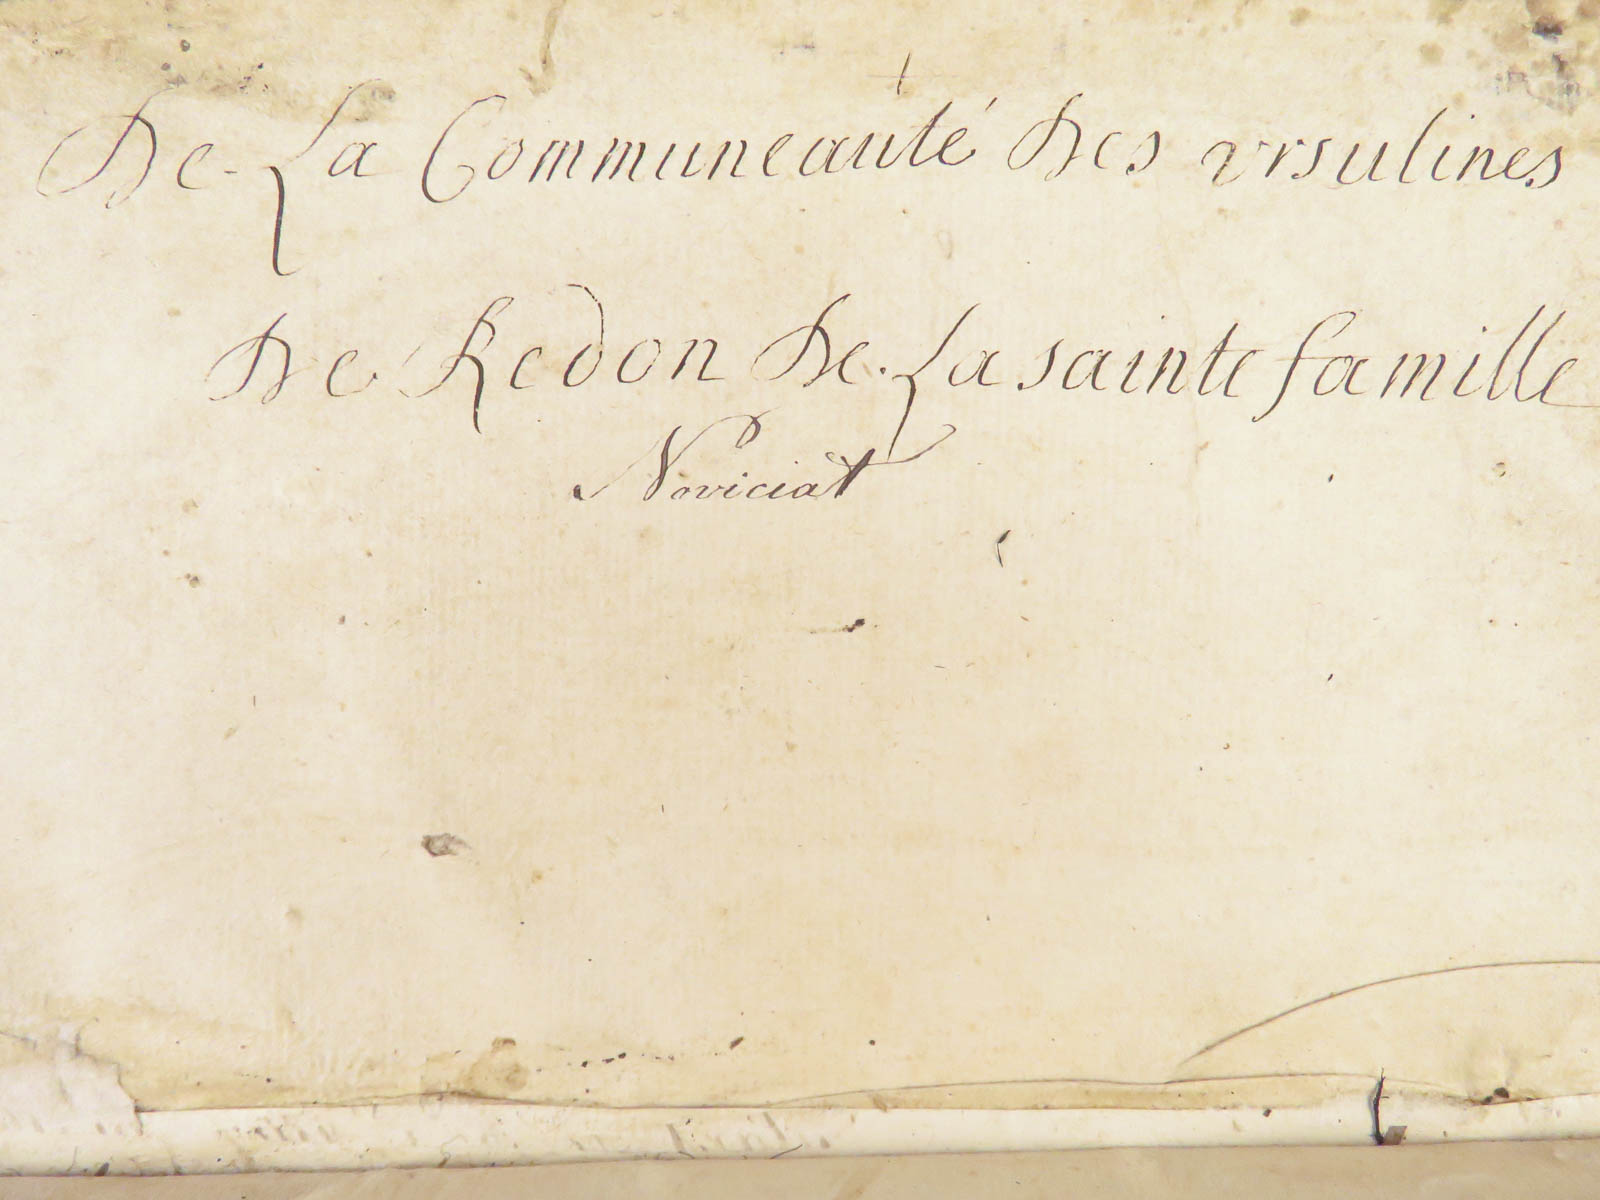 De La Communeauté Des vrsulines
De Redon De La sainte famille
Noviciat